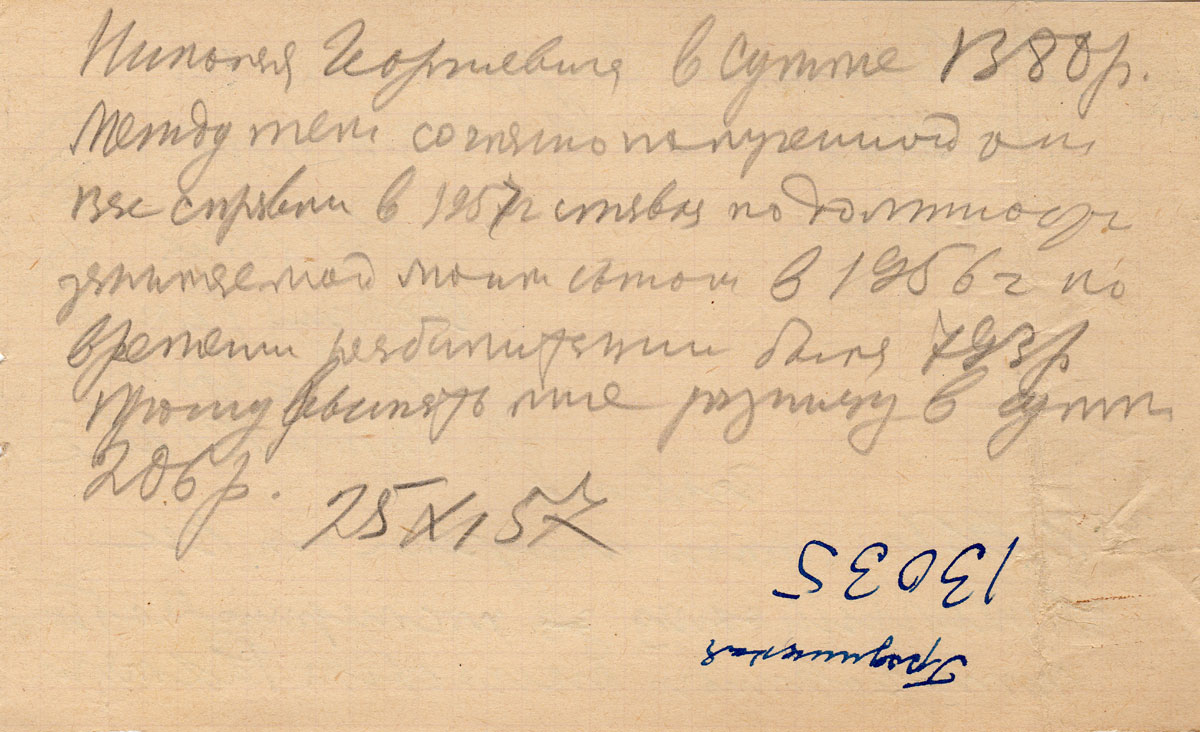 Николая Георгиевича в сумме 1380р.
Между тем согласно полученной от
вас справки в 1957г ставка по должности
занимаемой моим сыном в 1956г по
времени реабилитации была 793р
Прошу выслать мне разницу в сумме
206р.
25 XI 57
13035